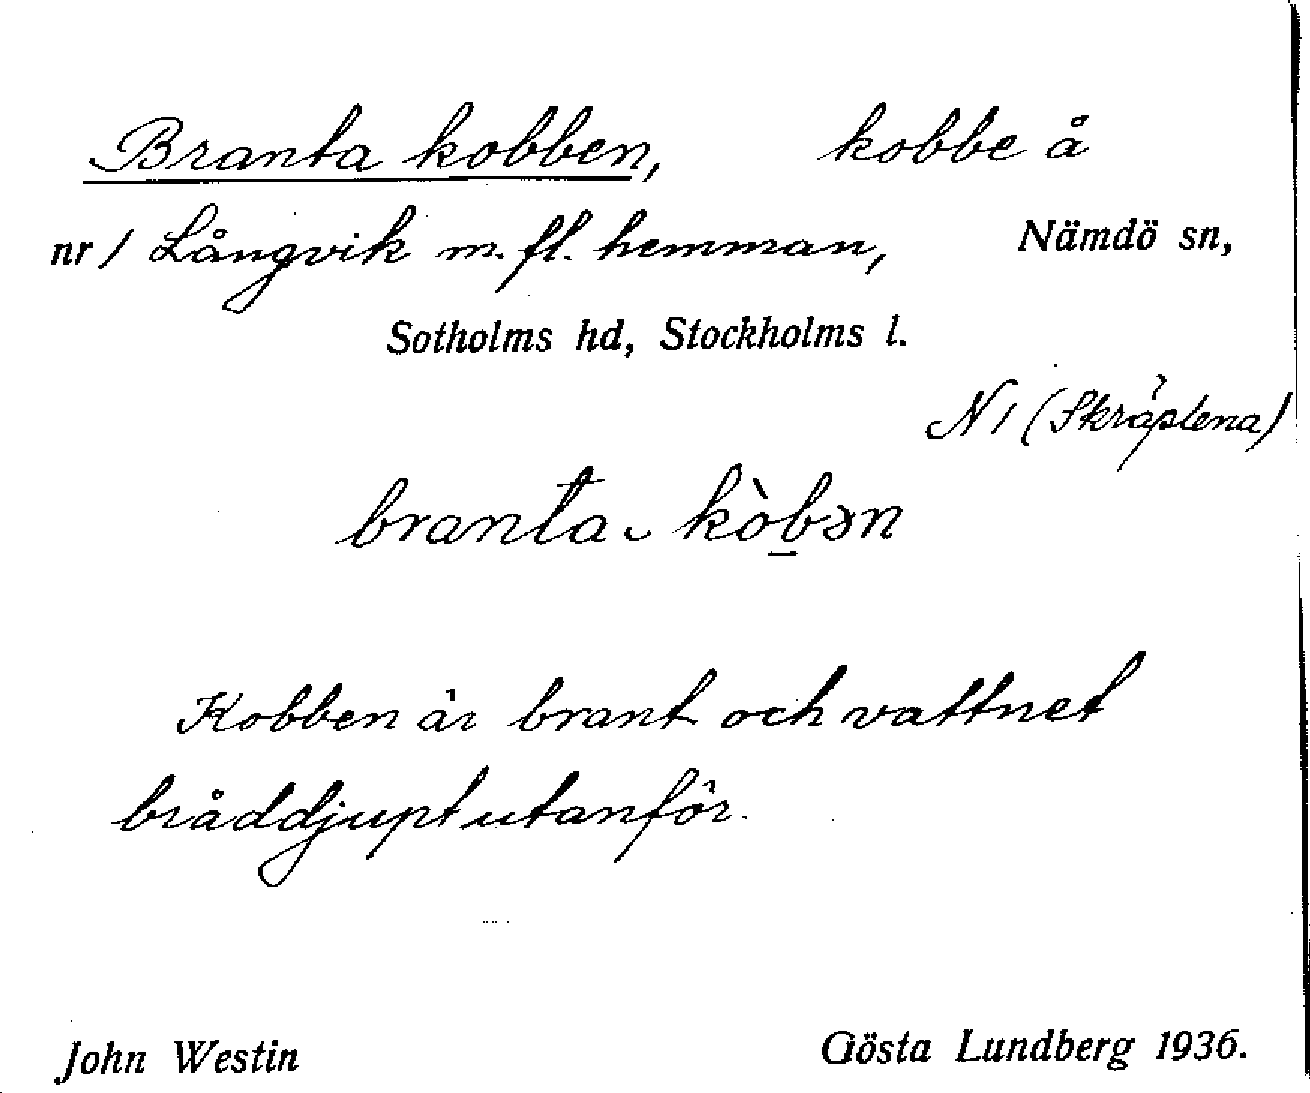 Branta kobben, kobbe å
nr 1 Långvik m. fl. hemman, Nämdö sn,
Sotholms hd, Stockholms l.
N 1 (Skräplena)
branta ˬ kòbən
Kobben är brant och vattnet
bråddjupt utanför.
John Westin Gösta Lundberg 1936.